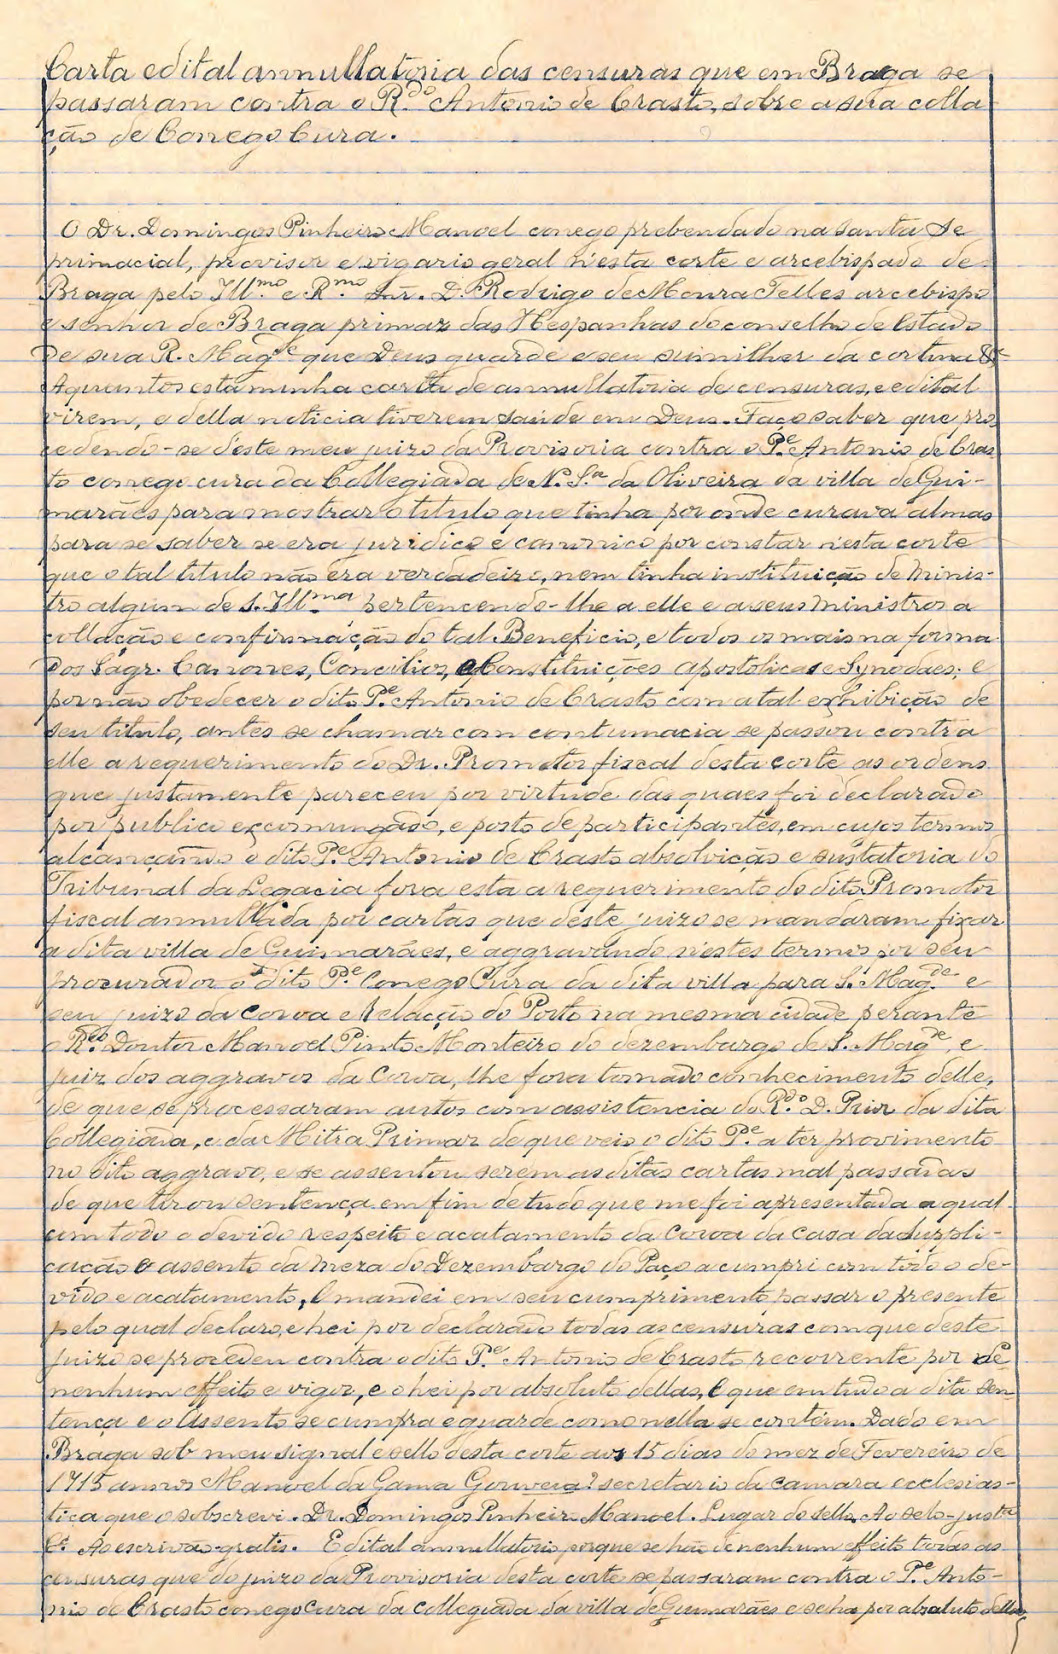 Carta edital annullatoria das censuras que em Braga se
passaram contra o R.do Antonio de Crasto, sobre a sua colla
ção de Conego Cura.
O Dr. Domingos Pinheiro Manoel conego prebendado na santa Se
primacial, provisor e vigario geral n'esta corte e arcebispado de
Braga pelo Ill.mo e R.mo Snr. D. Rodrigo de Moura Telles arcebispo
e senhor de Braga primaz das Hespanhas do conselho de Estado
de sua R. Mag.de que Deus guarde e seu sumilher da cortina &
A quantos esta minha carta de annullatoria de censuras, e edital
virem, e della noticia tiverem saúde em Deus. Faço saber que pro
cedendo-se d'este meu juizo da Provisoria contra o P.e Antonio de Cras
to conego cura da Collegiada de N. S.a da Oliveira da villa de Gui-
marães para mostrar o titulo que tinha por onde curava almas
para se saber se era juridico e canonico por constar n'esta corte
que o tal titulo não era verdadeiro, nem tinha instituição de Minis-
tro algum de s. Ill.ma pertencendo-lhe a elle e a seus Ministros a
collação e confirmação do tal Beneficio, e todos os mais na forma
dos Sagr. Canones, Concilios, e Constituições apostolicas e Synodaes; e
por não obedecer o dito P.e Antonio de Crasto com a tal exhibição de
seu titulo, antes se chamar com contumacia se passou contra
elle a requerimento do Dr. Promotor fiscal desta corte as ordens
que justamente pareceu por virtude das quaes foi declarado
por publico excomungado, e posto de participantes, em cujos termos
alcançando o dito P.e Antonio de Crasto absolvição e sustatoria do
Tribunal da Legacia fora esta a requerimento do dito Promotor
fiscal annullada por cartas que deste juizo se mandaram fixar
a dita villa de Guimarães, e aggravando n'estes termos por seu
procurador o dito P.e Conego Cura da dita villa para S. Mag.de e
seu juizo da Coroa e Relação do Porto na mesma cidade perante
o R.do Doutor Manoel Pinto Monteiro do dezembargo de S. Mag.de, e
juiz dos aggravos da Coroa, lhe fora tomado conhecimento delle,
de que se processaram autos com assistencia do R.do D. Prior da dita
Collegiada, e da Mitra Primaz de que veio o dito P.e a ter provimento
no dito aggravo, e se assentou serem as ditas cartas mal passadas
de que tirou sentença em fim de tudo que me foi apresentada a qual
com todo o devido respeito e acatamento da Coroa da casa da suppli-
cação e assento da Meza do Dezembargo do Paço a cumpri com todo o de-
vido e acatamento, e mandei em seu cumprimento passar o presente
pelo qual declaro, e hei por declarado todas as censuras com que deste
Juizo se procedeu contra o dito P.e Antonio de Crasto recorrente por de
nenhum effeito e vigor, e o hei por absoluto dellas, e que em tudo a dita sen
tença e o Assento se cumpra e guarde como nella se contém. Dado em
Braga sob meu signal e sello desta corte aos 15 dias do mez de Fevereiro de
1715 annos Manoel da Gama Gouveia? secretario da camara ecclesias-
tica que o sobscrevi. Dr. Domingos Pinheiro Manoel. Lugar do sello. Ao selo-
Ao escrivão-gratis. Edital annullatorio porque se hão de nenhum effeito todas as
censuras que do juizo da Provisoria desta corte se passaram contra o P.e Anto-
nio de Crasto conego Cura da collegiada da villa de Guimarães e se ha por absoluto dellas